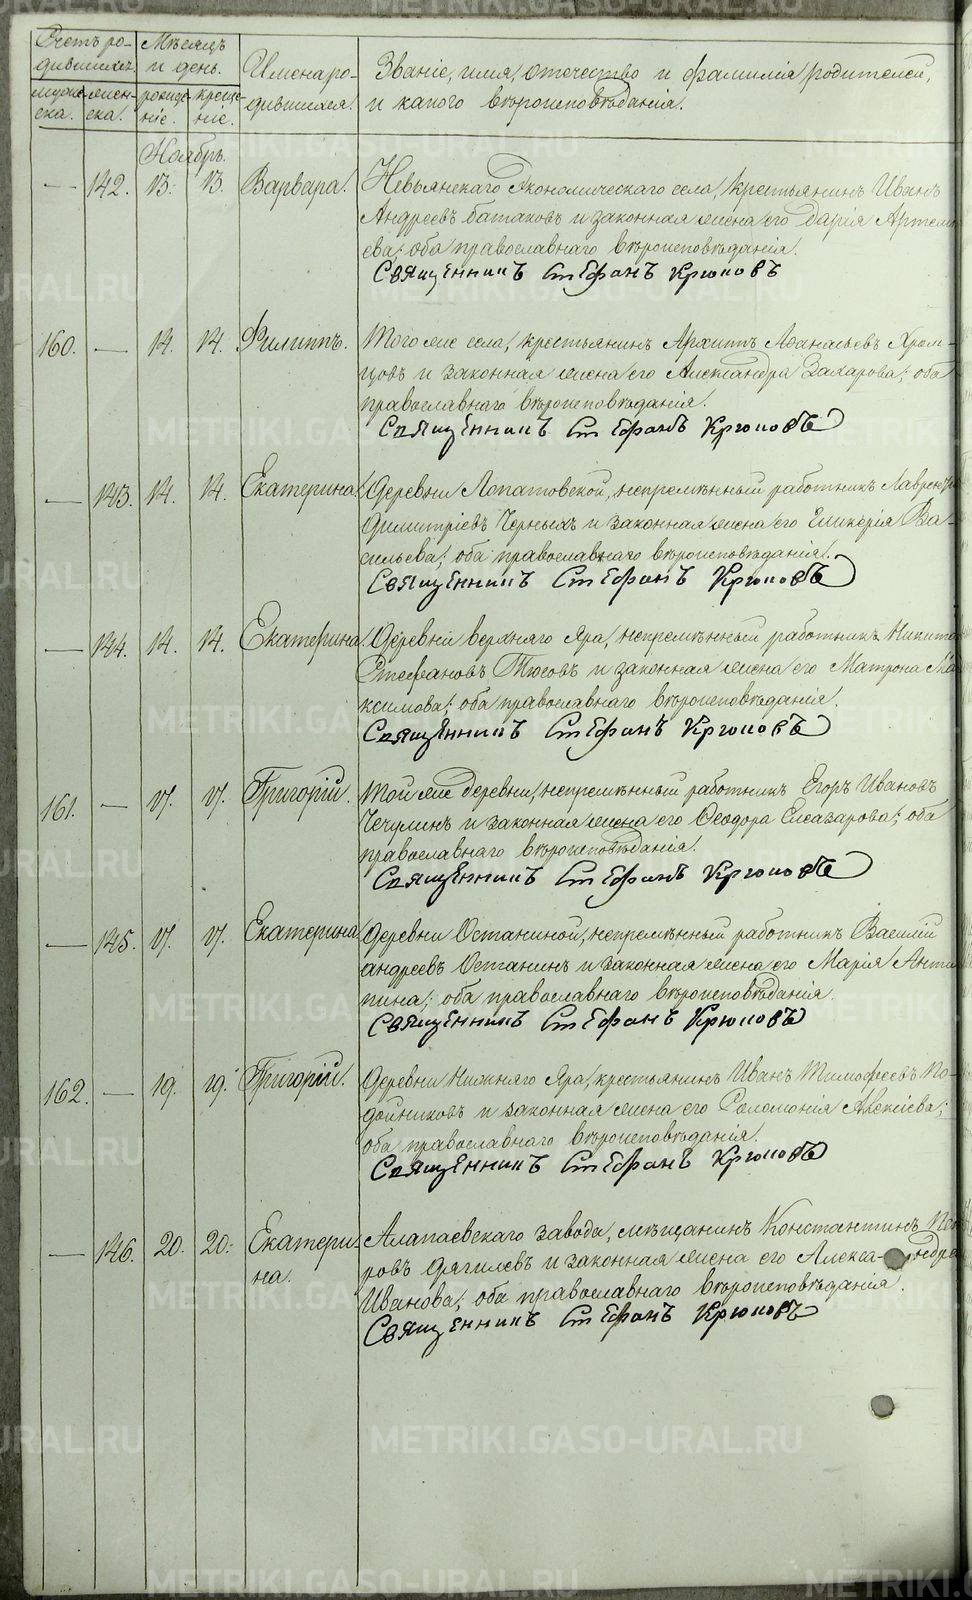 Счетъ ро-
дившихся.
Мѣсяцъ
и день.
Имена ро-
дившихся.
Званіе, имя, отечество и фамилія родителей,
и какого вѣроисповѣданія.
мужес-
ска.
жен-
ска.
рожде-
ніе.
креще-
ніе.
Ноябрь.
— 142. 13. 13. Варвара. Невьянскаго Экономическаго села, крестьянинъ Иванъ
Андреевъ Батаковъ и законная жена его Дарія Артемь-
ева; оба православнаго вѣроисповѣданія.
Священникъ Стефанъ Крюковъ
160. — 14. 14. Филиппъ. Того же села, крестьянинъ Архипъ Аѳанасьевъ Хром-
цовъ и законная жена его Александра Захарова; оба
православнаго вѣроисповѣданія.
Священникъ Стефанъ Крюковъ
— 143. 14. 14. Екатерина. Деревни Лопатовской, непремѣнный работникъ Лаврентій
Димитріевъ Черныхъ и законная жена его Гликерія Ва-
сильева; оба православнаго вѣроисповѣданія.
Священникъ Стефанъ Крюковъ
— 144. 14. 14. Екатерина. Деревни верхняго Яра, непремѣнный работникъ Никита
Стефановъ Тюсовъ и законная жена его Матрона Ма-
ксимова; оба православнаго вѣроисповѣданія.
Священникъ Стефанъ Крюковъ
161. — 17. 17. Григорій. Той же деревни, непремѣнный работникъ Егоръ Ивановъ
Чечулинъ и законная жена его Ѳеодора Елеазарова; оба
православнаго вѣроисповѣданія.
Священникъ Стефанъ Крюковъ
— 145. 17. 17. Екатерина. Деревни Останиной, непремѣнный работникъ Василій
Андреевъ Останинъ и законная жена его Марія Анти-
пина; оба православнаго вѣроисповѣданія.
Священникъ Стефанъ Крюковъ
162. — 19. 19. Григорій. Деревни Нижняго Яра, крестьянинъ Иванъ Тимофеевъ По-
дойниковъ и законная жена его Соломонія Алексіева;
оба православнаго вѣроисповѣданія.
Священникъ Стефанъ Крюковъ
— 146. 20. 20. Екатери- Алапаевскаго завода, мѣщанинъ Константинъ Пет-
на. ровъ Дягилевъ и законная жена его Александра
Иванова; оба православнаго вѣроисповѣданія.
Священникъ Стефанъ Крюковъ
METRIKI.GASO-URAL.RU